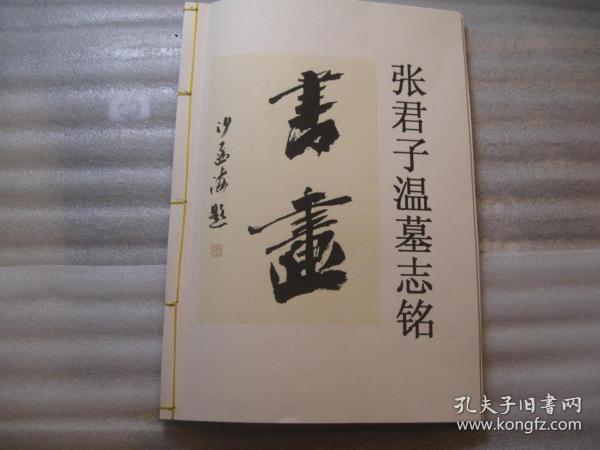 张君子温墓志铭
書畫
沙孟海题
孔夫子旧書网
www.kongfz.com